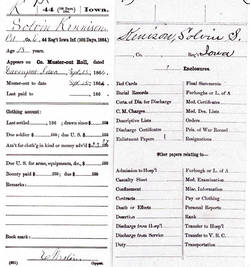 K 44 Iowa.
Solvin Kennison
Pvt., Co. G, 44 Reg't Iowa Inf. (100 Days, 1864.)
Age 18 years.
Appears on Co. Muster-out Roll, dated
Davenport Iowa Sept. 15, 1864.
Muster-out to date Sept. 15, 1864.
Last paid to 186 .
Clothing account:
Last settled 186 ; drawn since $
Due soldier $ ; due U. S. $
Am't for cloth'g in kind or money adv'd $
Due U. S. for arms, equipments, &c., $
Bounty paid $ ; due $
Remarks:
Book mark:
Copyist.
Kenison, Solvin S.
Iowa
Enclosures.
Bed Cards
Burial Records
Certs. of Dis. for Discharge
C. M. Charges
Descriptive Lists
Discharge Certificates
Enlistment Papers
Final Statements
Furloughs or L. of A
Med. Certificates
Med. Des. Lists
Orders
Pris. of War Record
Resignations
Other papers relating to—
Admission to Hosp'l
Casualty Sheet
Confinement
Contracts
Death or Effects
Desertion
Discharge from Hosp'l
Discharge from Service
Duty
Furlough or L. of A
Med. Examination
Misc. Information
Pay or Clothing
Personal Reports
Rank
Transfer to Hosp'l
Transfer to V. R. C.
Transportation